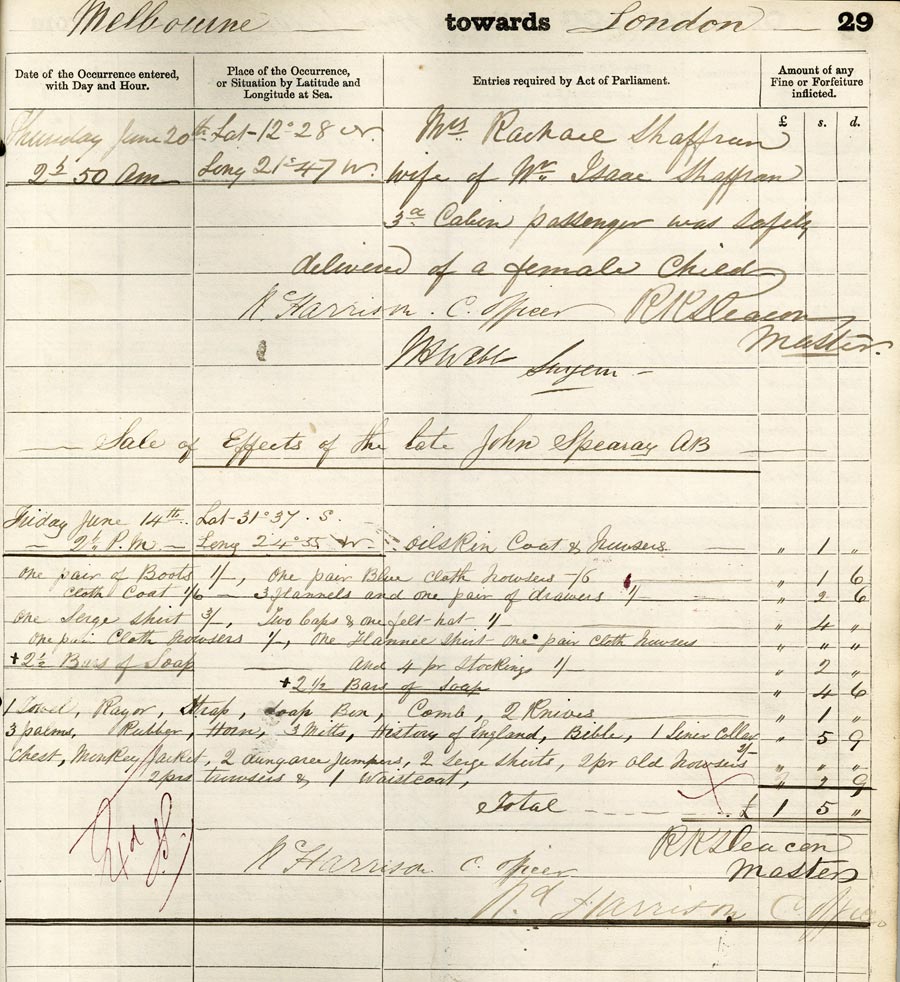 Melbourne — towards London — 29
Date of the Occurrence entered, with Day and Hour.
Place of the Occurrence, or Situation by Latitude and Longitude at Sea.
Entries required by Act of Parliament.
Amount of any Fine or Forfeiture inflicted.
£ s. d.
Thursday June 20th Lat - 12° 28 N. Mrs Rachael Shaffran
2h 50 Am Long 21° 47 W. wife of Mr Isaac Shaffran
3d Cabin passenger was safely
delivered of a female Child
N Harrison. C. officer RKS Deacon
Master.
Surgeon -
— Sale of Effects of the late John Spearay AB —
Friday June 14th Lat - 31° 37. S.
- 2h P.M - Long 24° 55 W - Oilskin Coat & Trowsers — " 1 "
one pair of Boots 1/-, one pair Blue cloth trowsers -/6 — " 1 6
Cloth Coat 1/6 — 3 Flannels and one pair of drawers 1/ — " 2 6
one Serge shirt 3/-, Two Caps & one felt hat 1/ — " 4 "
one pair Cloth trowsers 1/, one Flannel shirt one pair cloth trowsers " " "
+ 2½ Bars of Soap — and 4 pr Stockings 1/ " 2 "
+ 2 1/2 Bars of Soap " 4 6
1 Towel, Razor, Strap, Soap Box, Comb, 2 Knives — " 1 "
3 palms, Rubber, Horn, 3 Mitts, History of England, Bible, 1 Liner Collar " 5 9
Chest, Monkey Jacket, 2 dungaree Jumpers, 2 Serge shirts, 2 pr old trowsers 2/- " " "
2 prs trowsers & 1 Waistcoat, " 2 9
Total - - - - £ 1 5 "
RKS Deacon
N Harrison C. officer Master
Nd Harrison C officer